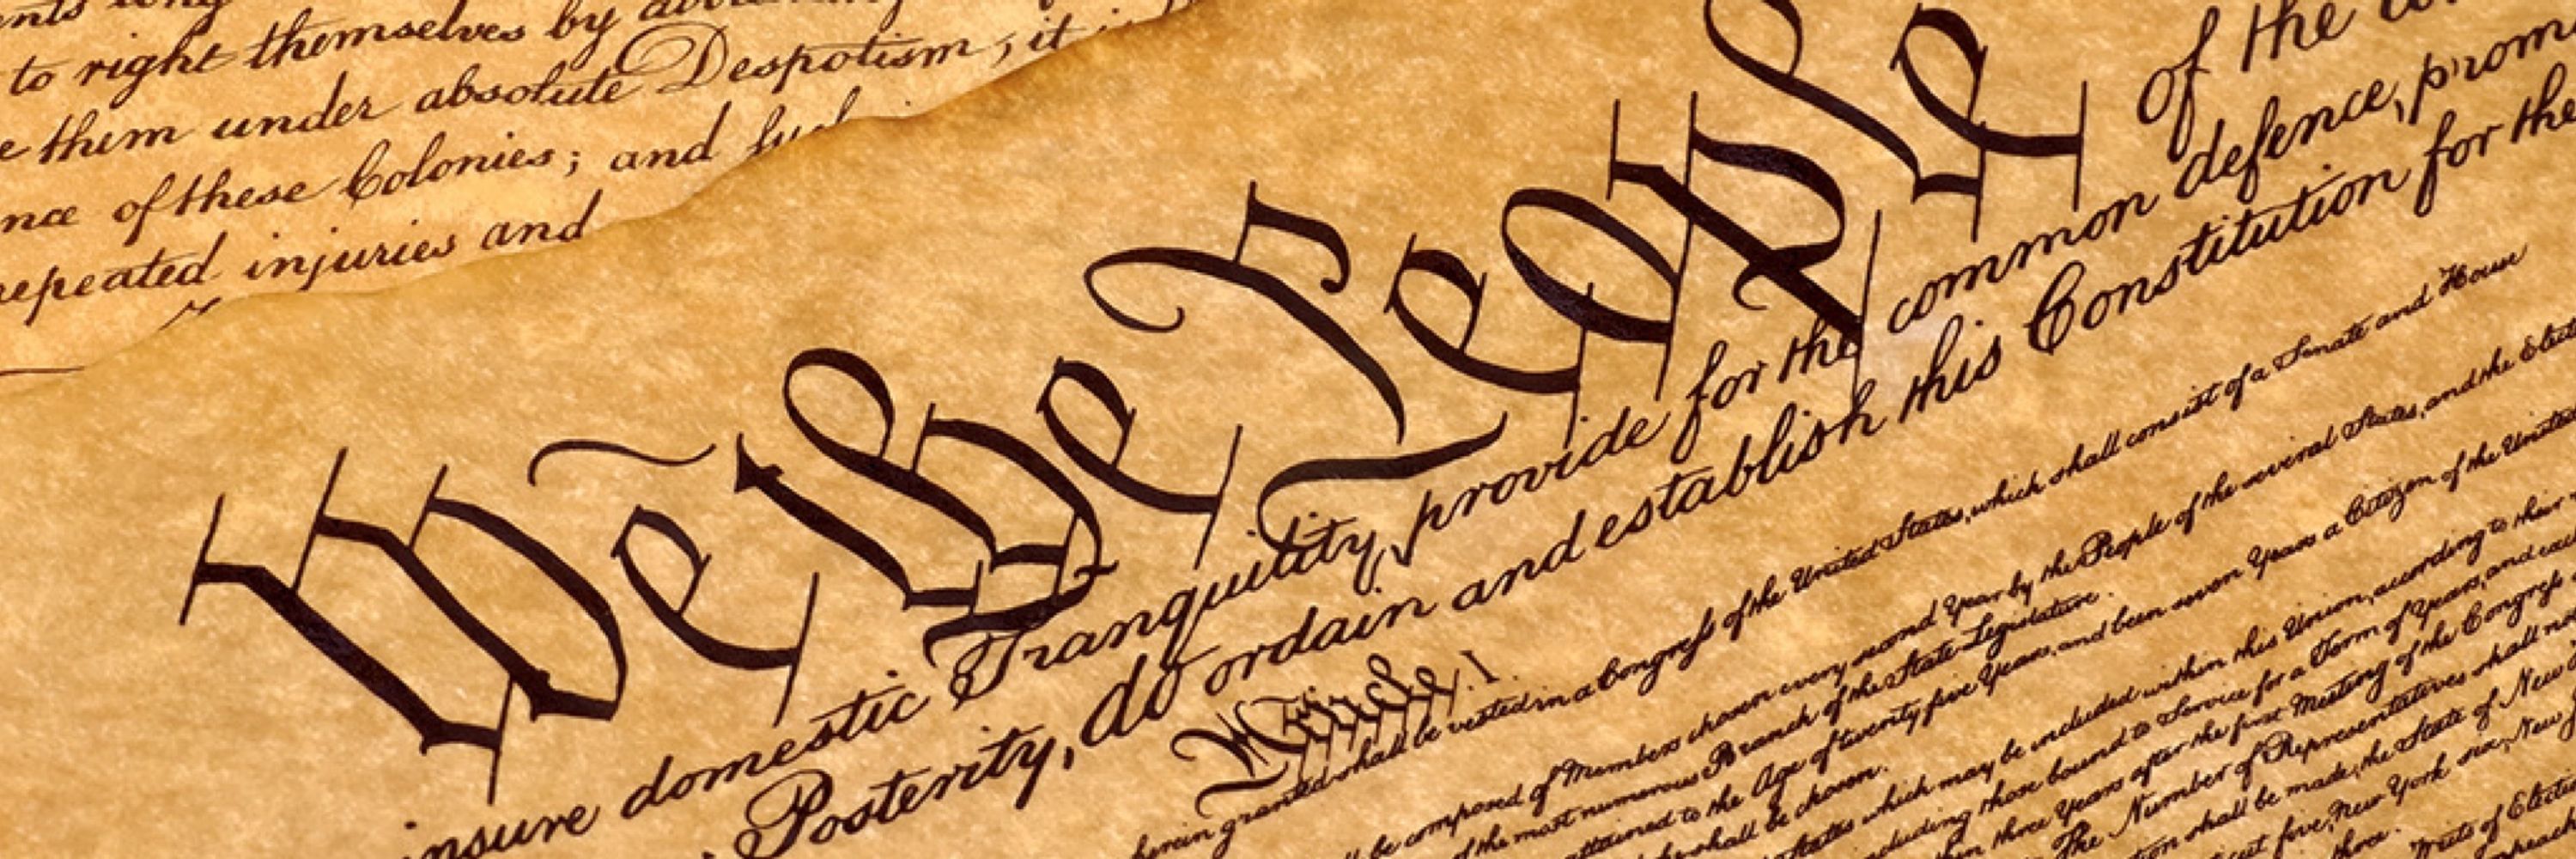 to right themselves by
them under absolute Despotism, it
of these Colonies; and such
repeated injuries and
We the People
of the
insure domestic Tranquility, provide for the common defence, prom
Posterity, do ordain and establish this Constitution for the
Article I.
herein granted shall be vested in a Congress of the United States, which shall consist of a Senate and House
be composed of Members chosen every second Year by the People of the several States, and the Elect
of the most numerous Branch of the State Legislature.
attained to the Age of twenty five Years, and been seven Years a Citizen of the United
he shall be chosen.
States which may be included within this Union, according to their
including those bound to Service for a Term of Years, and
three Years after the first Meeting of the Congress
The Number of Representatives shall not
shall be made, the State of New
five, New York six, New
three.
Writs of Electi